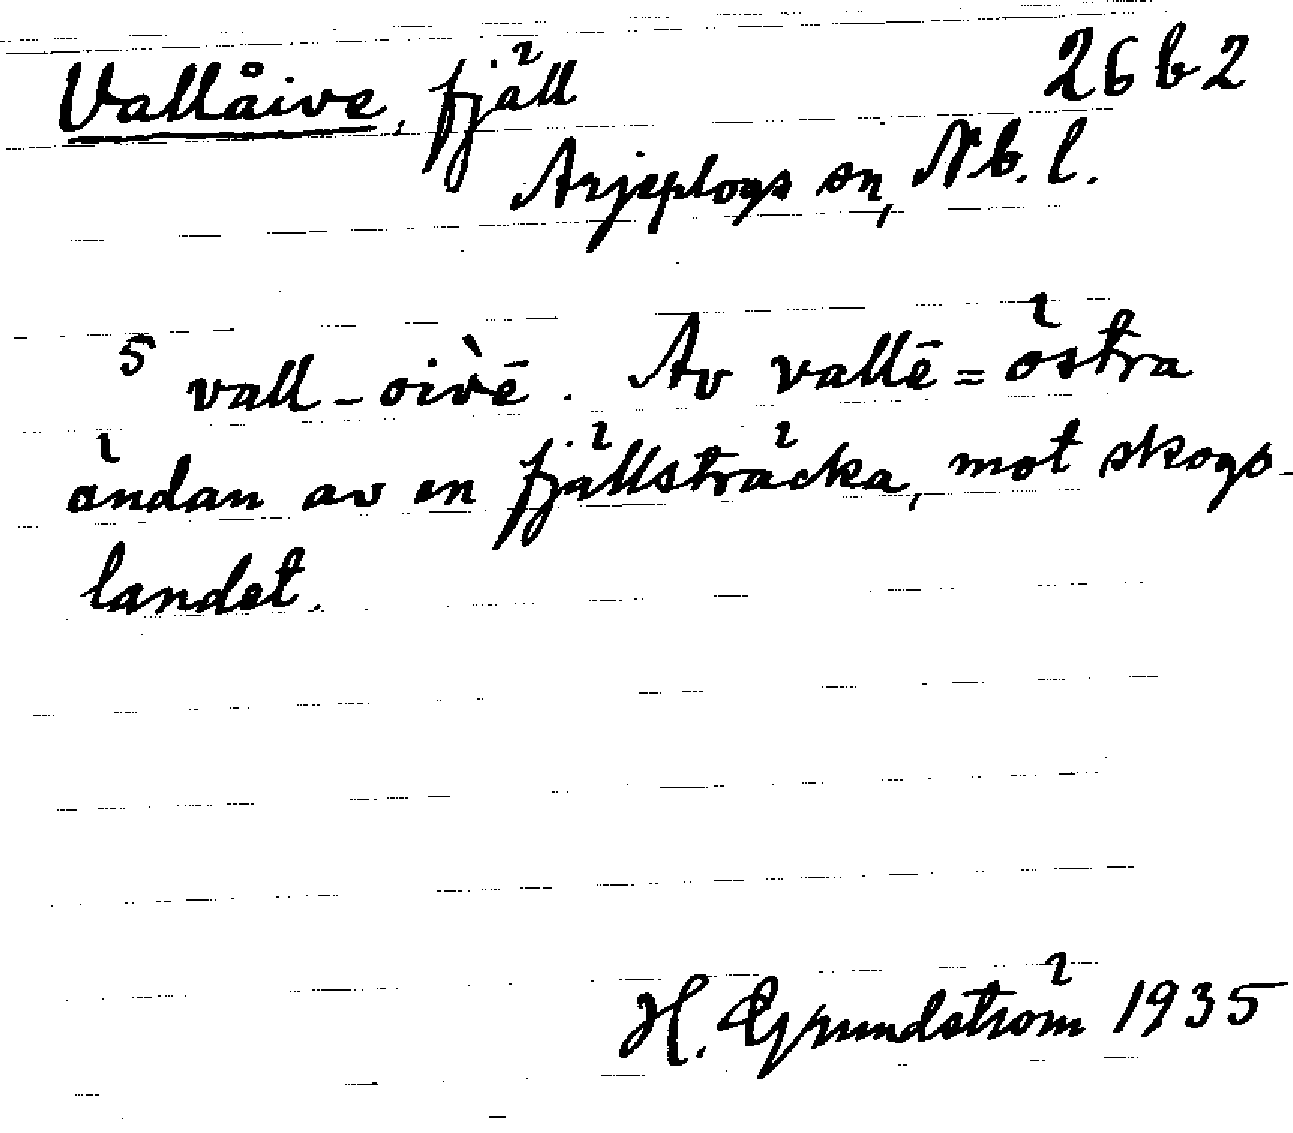 Vallåive, fjäll 26 b 2
Arjeplogs sn, Nb. l.
5 vall-oìvē. Av vallē = östra
ändan av en fjällsträcka, mot skogs-
landet.
H. Grundström 1935